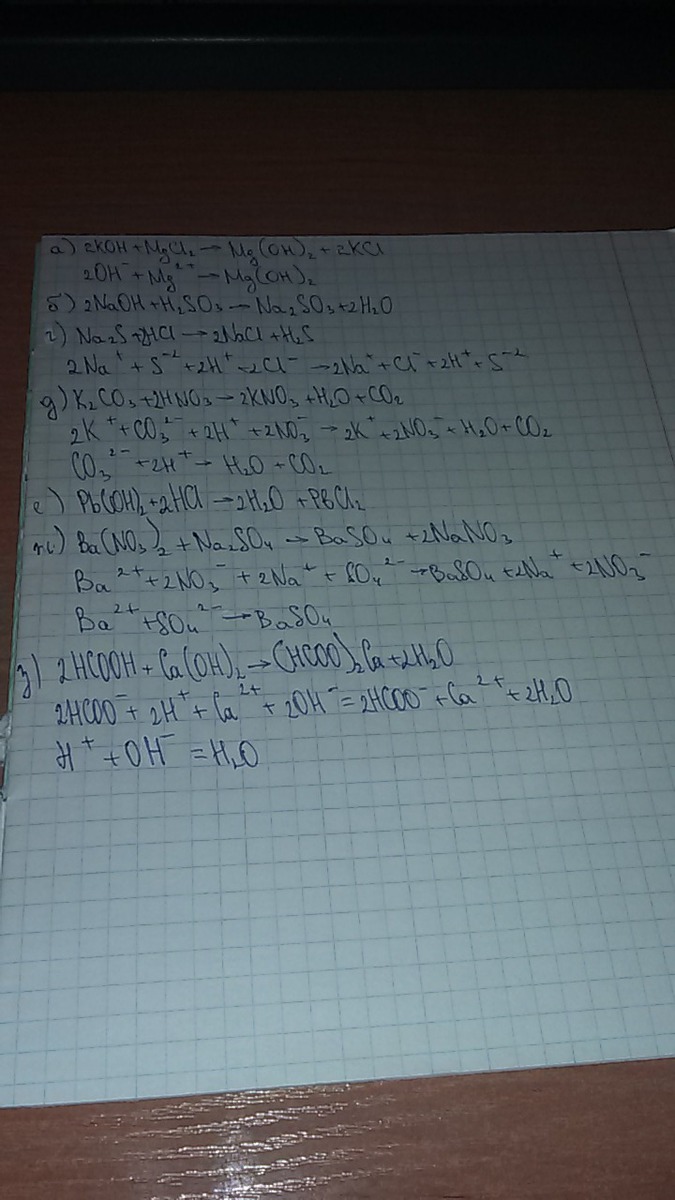 а) 2KOH+MgCl₂→Mg(OH)₂+2KCl
2OH⁻+Mg²⁺→Mg(OH)₂
б) 2NaOH+H₂SO₃→Na₂SO₃+2H₂O
г) Na₂S+2HCl→2NaCl+H₂S
2Na⁺+S⁻²+2H⁺+2Cl⁻→2Na⁺+Cl⁻+2H⁺+S⁻²
д) K₂CO₃+2HNO₃→2KNO₃+H₂O+CO₂
2K⁺+CO₃²⁻+2H⁺+2NO₃⁻→2K⁺+2NO₃⁻+H₂O+CO₂
CO₃²⁻+2H⁺→H₂O+CO₂
е) Pb(OH)₂+2HCl→2H₂O+PbCl₂
ж) Ba(NO₃)₂+Na₂SO₄→BaSO₄+2NaNO₃
Ba²⁺+2NO₃⁻+2Na⁺+SO₄²⁻→BaSO₄+2Na⁺+2NO₃⁻
Ba²⁺+SO₄²⁻→BaSO₄
з) 2HCOOH+Ca(OH)₂→(HCOO)₂Ca+2H₂O
2HCOO⁻+2H⁺+Ca²⁺+2OH⁻=2HCOO⁻+Ca²⁺+2H₂O
H⁺+OH⁻=H₂O